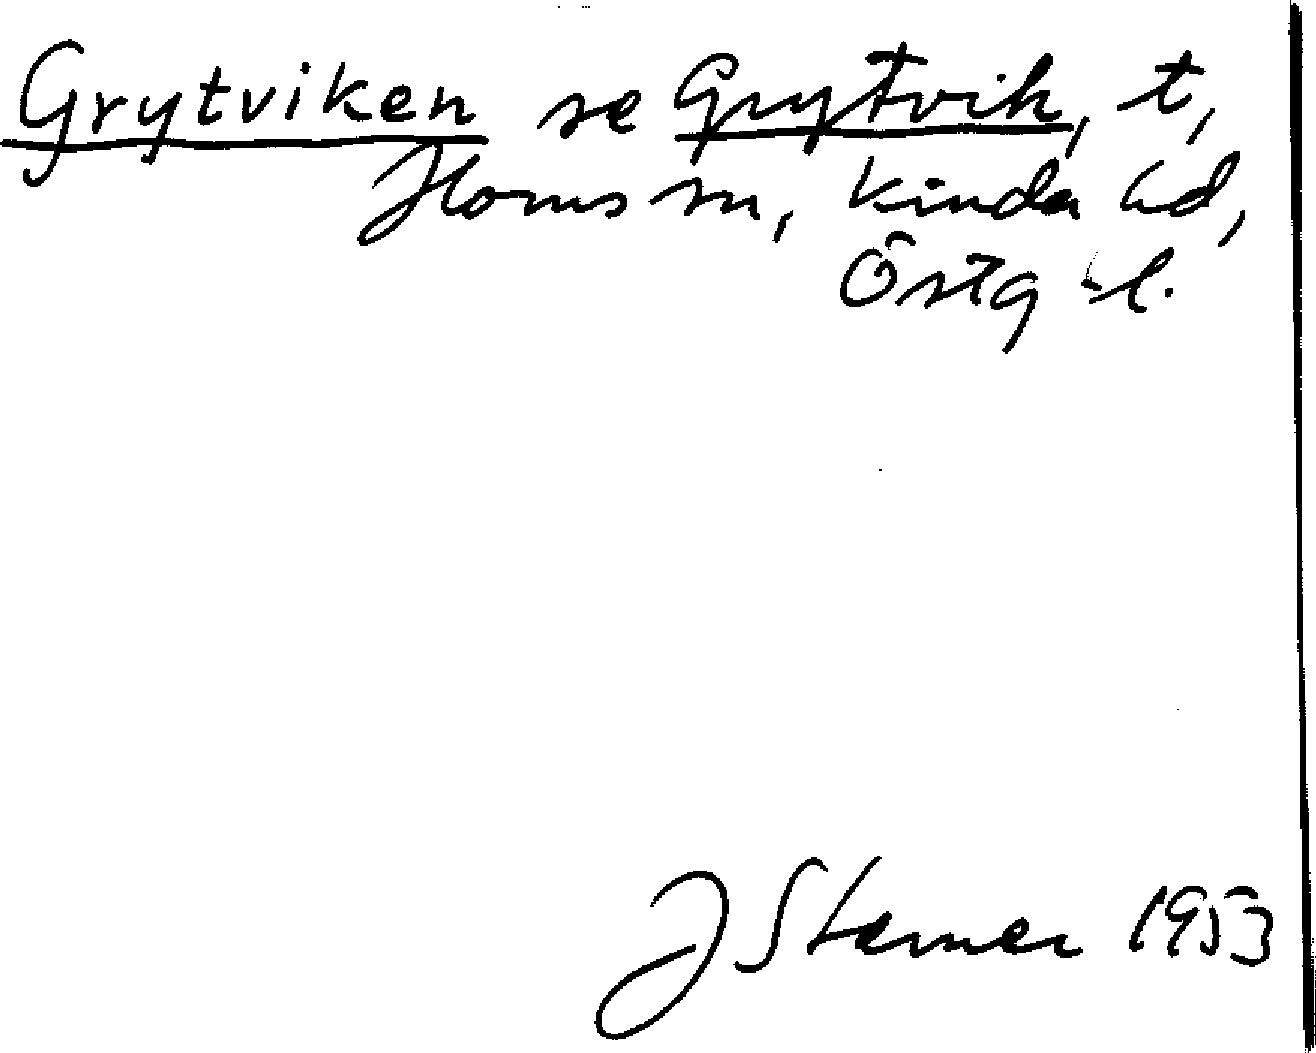 Grytviken se Grytvik, t,
Horns sn, Kinda hd,
Östg l.
J Sterner 1953